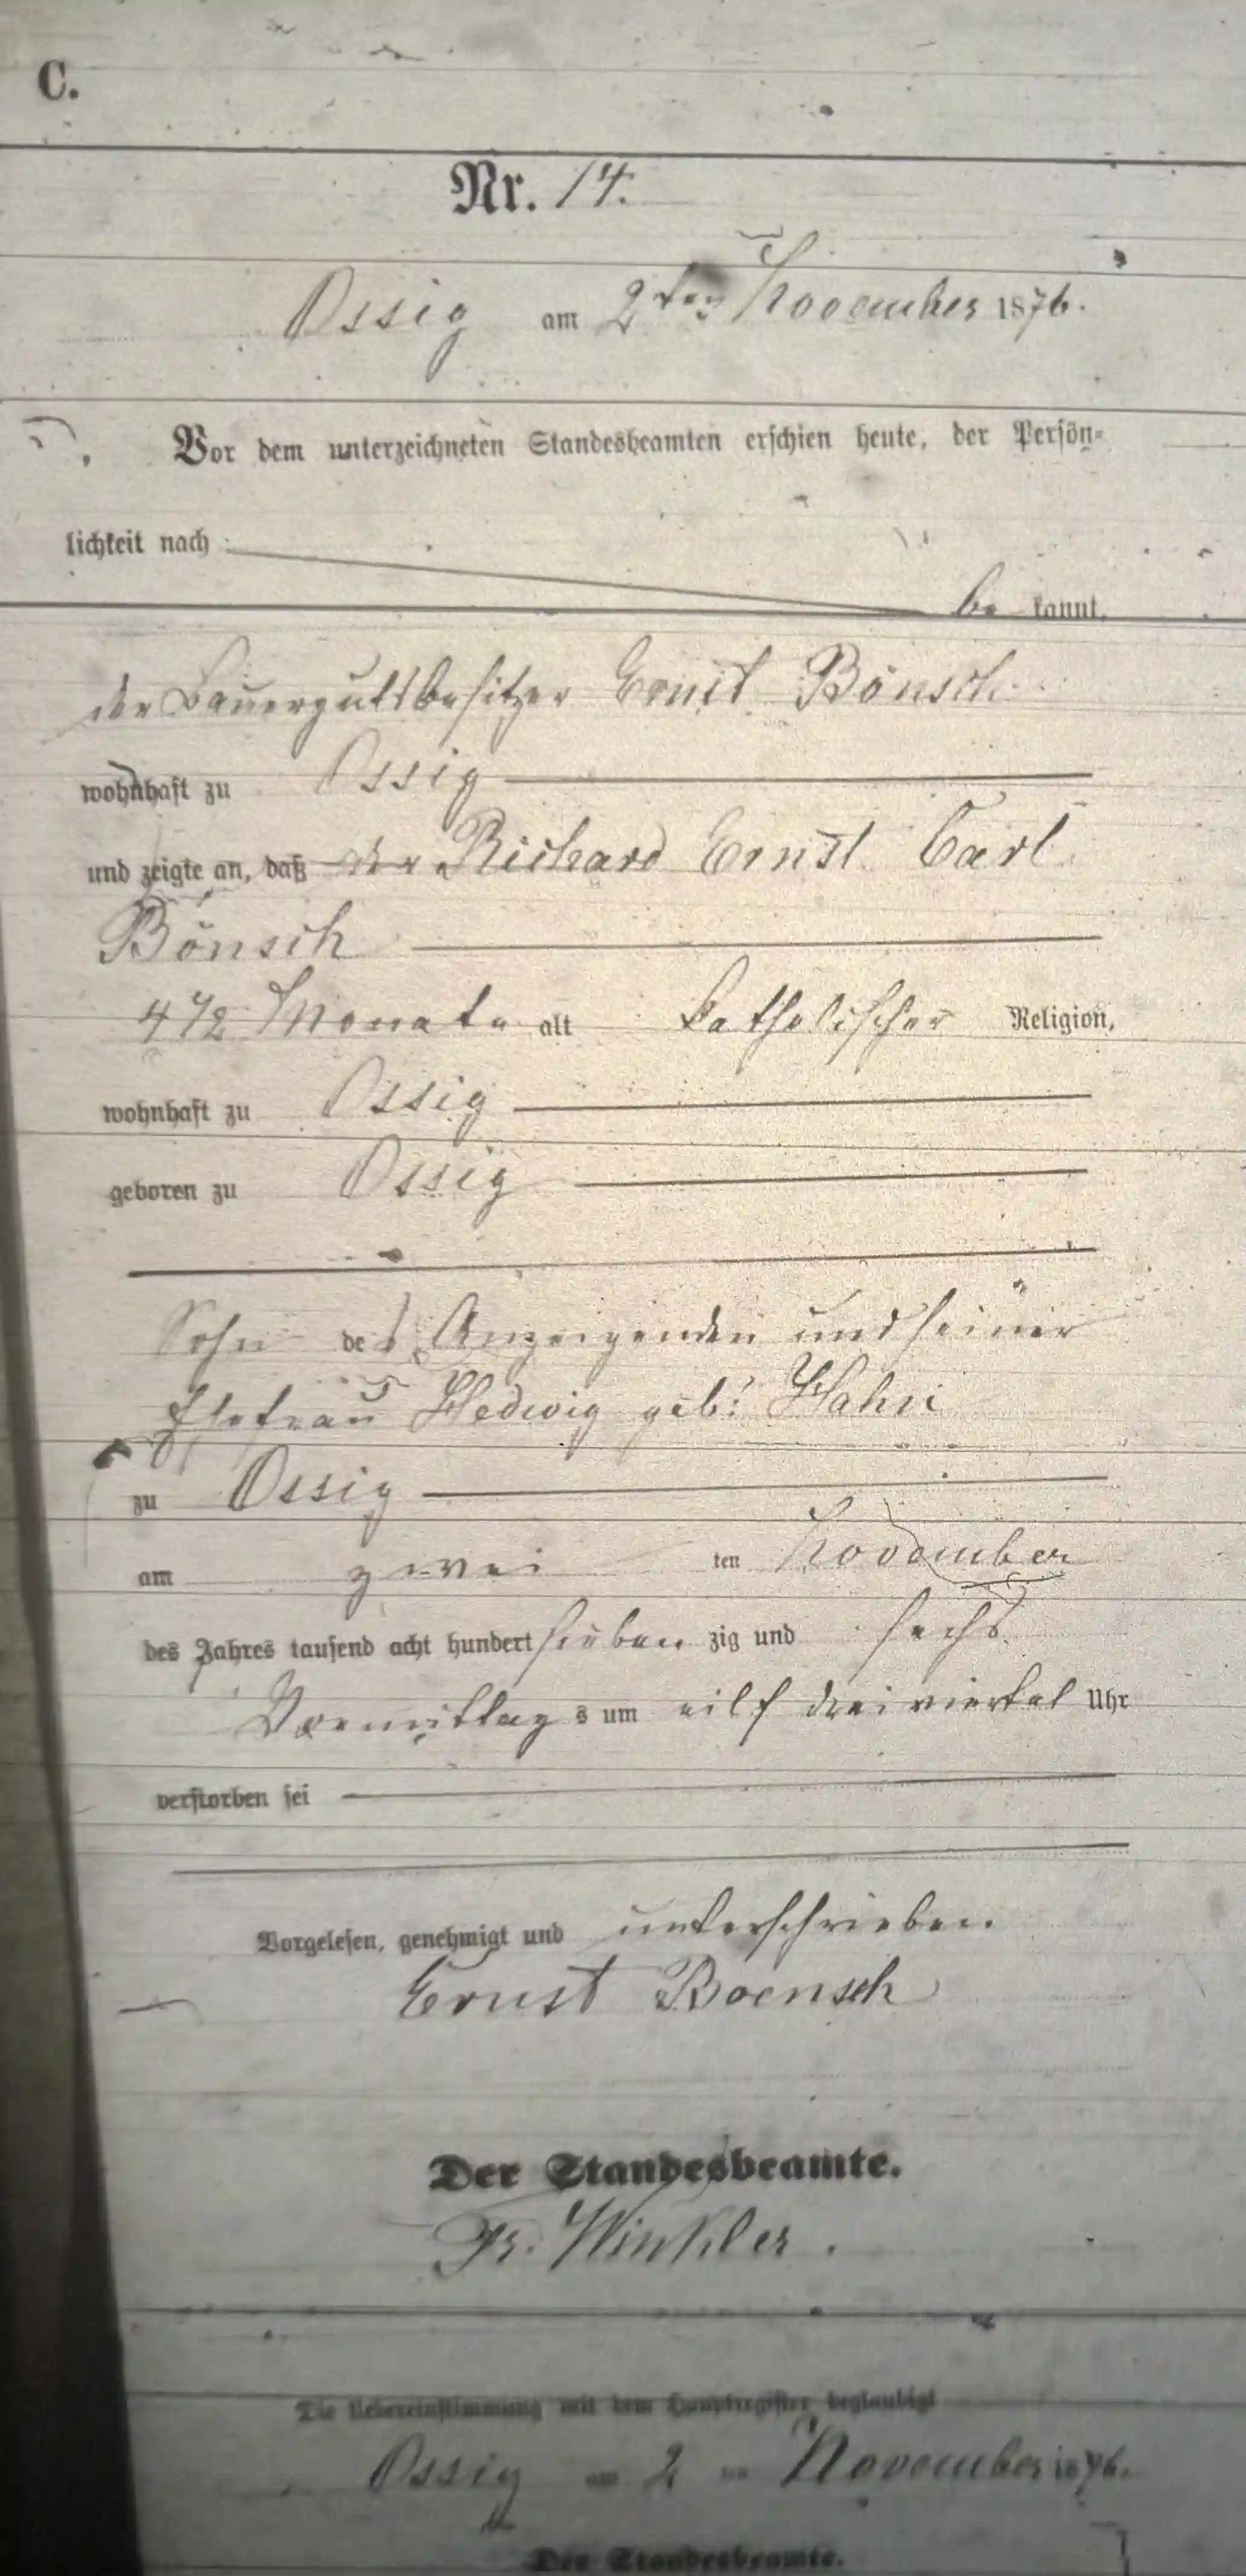 C.
Nr. 14.
Ossig am 2ten November 1876.
Vor dem unterzeichneten Standesbeamten erschien heute, der Persön-
lichkeit nach
be kannt,
der Bauergutsbesitzer Ernst Bönsch
wohnhaft zu Ossig
und zeigte an, daß der Richard Ernst Carl
Bönsch
4 1/2 Monate alt katholischer Religion,
wohnhaft zu Ossig
geboren zu Ossig
Sohn des Anzeigenden und seiner
Ehefrau Hedwig geb: Hahn
zu Ossig
am zwei ten November
des Jahres tausend acht hundert sieben zig und sechs
Vormittag s um eilf dreiviertel Uhr
verstorben sei
Vorgelesen, genehmigt und unterschrieben.
Ernst Boensch
Der Standesbeamte.
Fr. Winkler.
Die Uebereinstimmung mit dem Hauptregister beglaubigt
Ossig am 2 ten November 1876.
Der Standesbeamte.